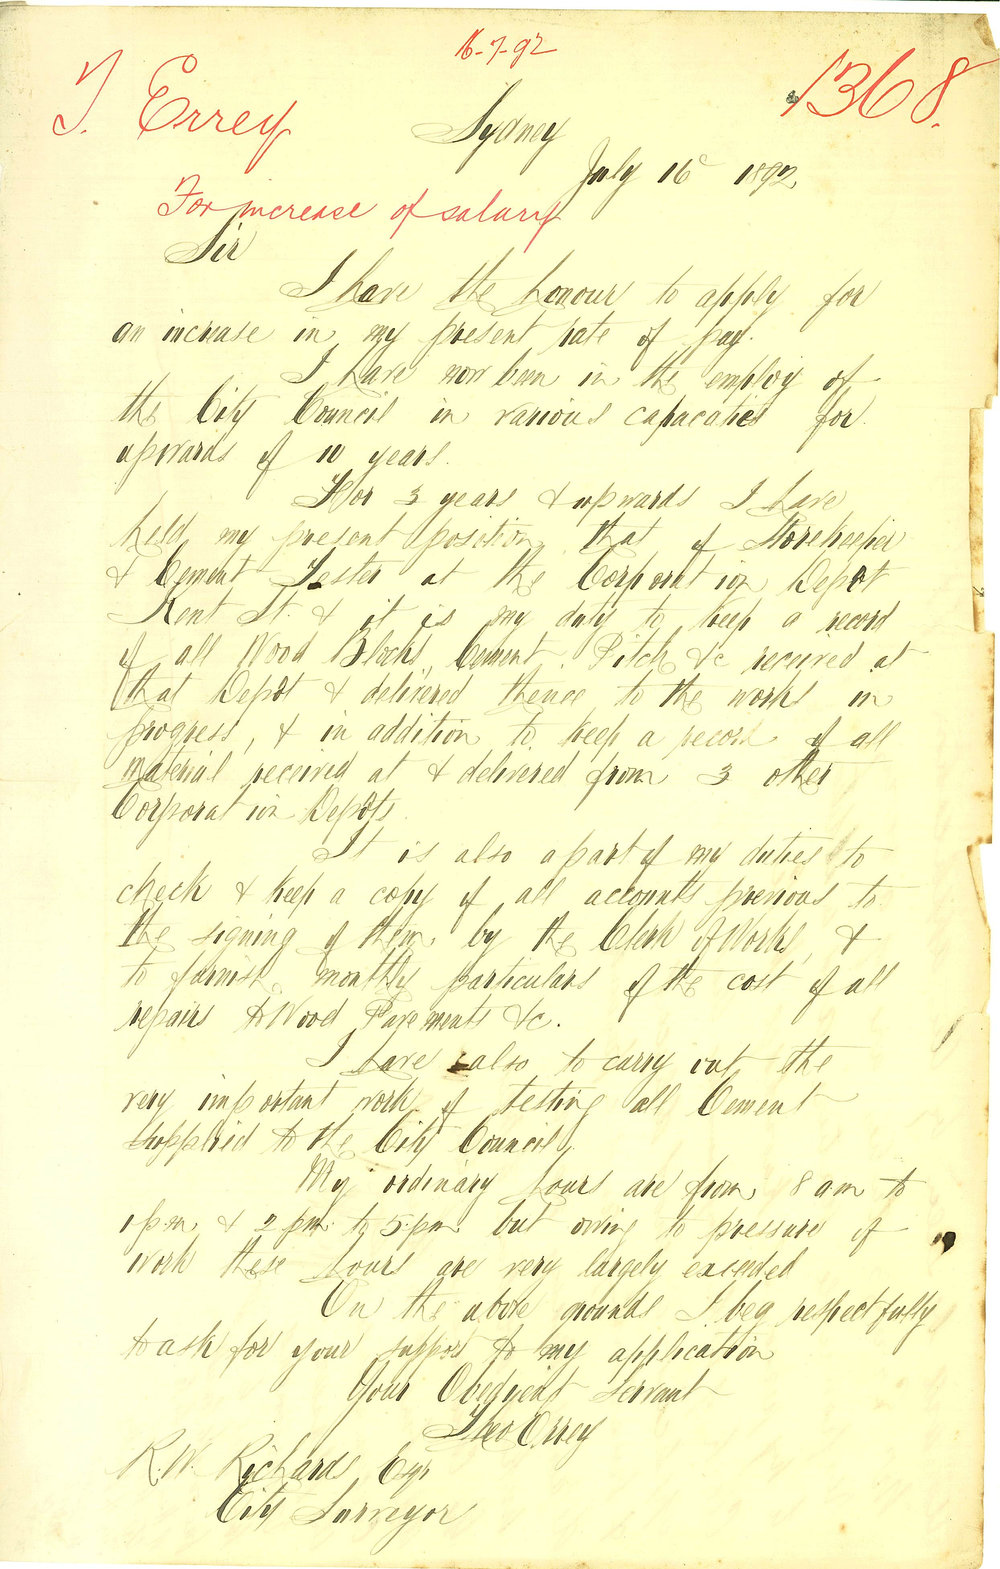 16-7-92
T. Errey
1368.
Sydney
July 16 1892
For increase of salary
Sir
I have the honour to apply for
an increase in my present rate of pay.
I have now been in the employ of
the City Council in various capacaties for
upwards of 10 years.
For 3 years & upwards I have
held my present position that of Storekeeper
& Cement Tester at the Corporation Depôt
Kent St. & it is my duty to keep a record
of all Wood Blocks, Cement, Pitch &c received at
that Depôt & delivered thence to the works in
progress, & in addition to keep a record of all
Material received at & delivered from 3 other
Corporation Depôts.
It is also a part of my duties to
check & keep a copy of all accounts previous to
the signing of them by the Clerk of Works, &
to furnish monthly particulars of the cost of all
repairs to Wood Pavements &c.
I have also to carry out the
very important work of testing all Cement
supplied to the City Council.
My ordinary hours are from 8 am to
1 pm & 2 pm to 5 pm but owing to pressure of
work these hours are very largely exceeded
On the above grounds I beg respectfully
to ask for your support to my application
Your Obedient Servant
Theo Errey
R.W. Richards Eqr
City Surveyor